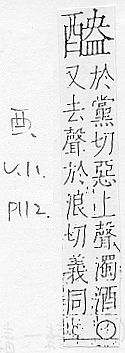 醠
於黨切惡上聲濁酒○
又去聲於浪切義同
酉、
V.11.
P112.